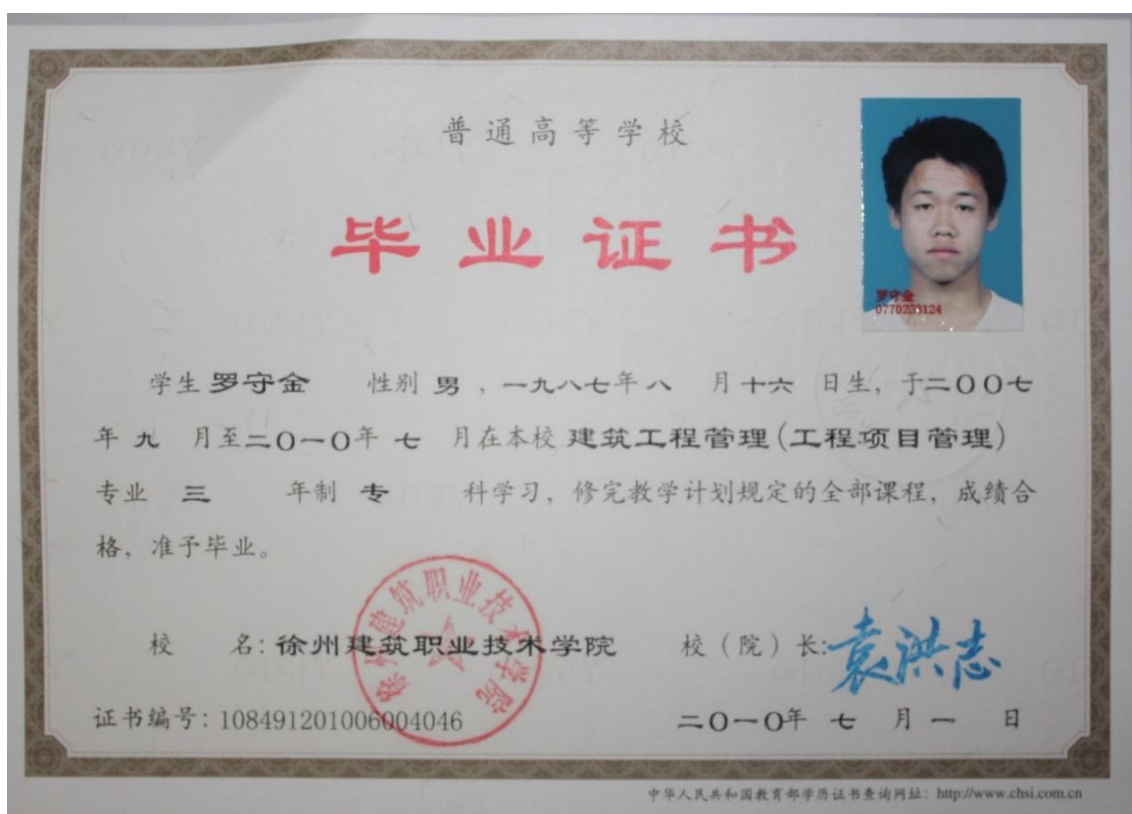 普通高等学校
毕业证书
罗守金
0770233124
学生 罗守金 性别 男 ，一九八七年八 月十六 日生，于二〇〇七
年 九 月至二〇一〇年 七 月在本校 建筑工程管理（工程项目管理）
专业 三 年制 专 科学习，修完教学计划规定的全部课程，成绩合
格，准予毕业。
徐州建筑职业技术学院
校 名：徐州建筑职业技术学院 校（院）长：袁洪志
证书编号：108491201006004046 二〇一〇年 七 月 一 日
中华人民共和国教育部学历证书查询网址：http://www.chsi.com.cn